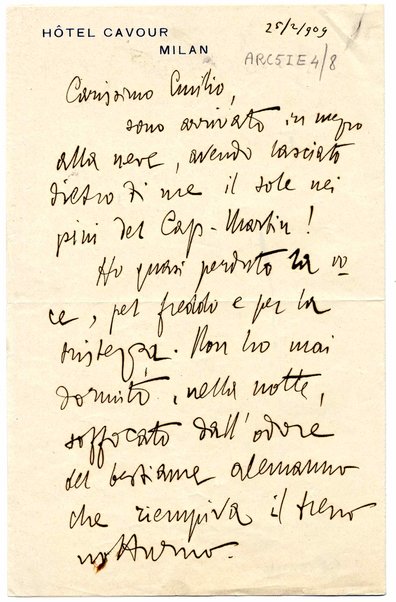 HÔTEL CAVOUR
MILAN
25/2/909
ARC5IE4/8
Carissimo Emilio,
sono arrivato in mezzo
alla neve, avendo lasciato
dietro di me il sole nei
pini del Cap-Martin!
Ho quasi perduto la vo
ce, pel freddo e per la
tristezza. Non ho mai
dormito, nella notte,
soffocato dall'odore
del bestiame alemanno
che riempiva il treno
notturno.